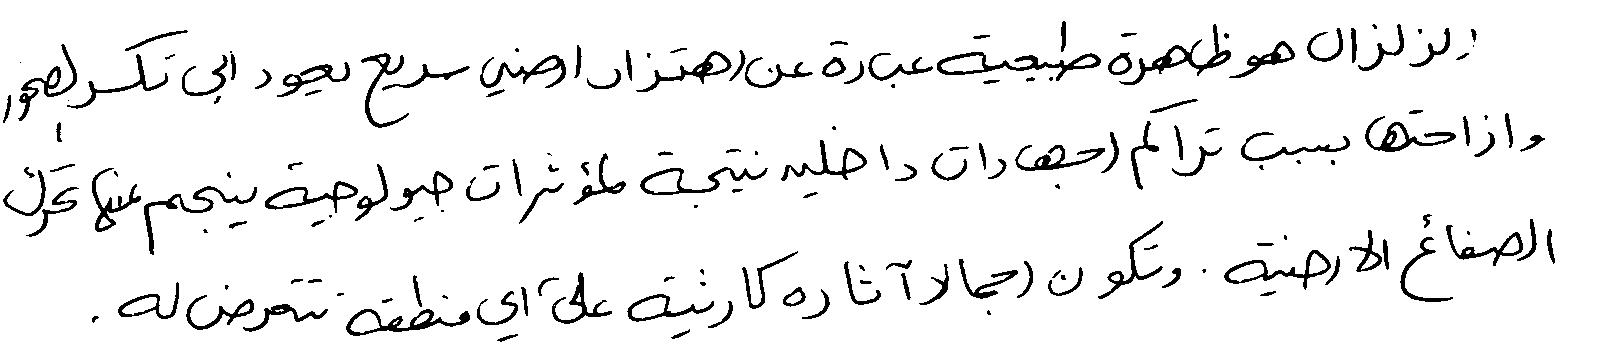 الزلزال هو ظاهرة طبيعية عبارة عن اهتزاز ارضي سريع يعود الى تكسر الصخور
وازاحتها بسبب تراكم اجهادات داخليه نتيجة لمؤثرات جيولوجية ينجم عنها تحرك
الصفائح الارضية. وتكون اجمالا آثاره كارثية على أي منطقة تتعرض له.